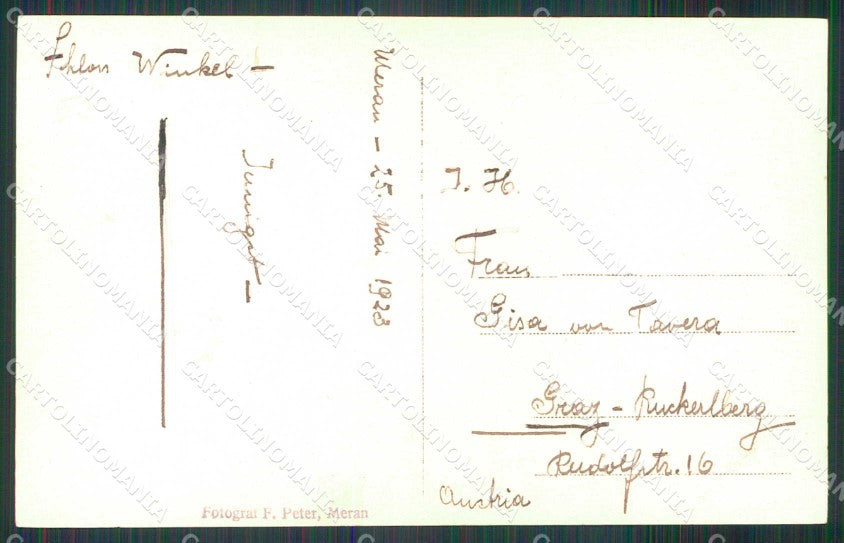 Schloss Winkel –
Innigst –
Meran – 25. Mai 1923
I. H.
Frau
Gisa von Tavera
Graz – Ruckerlberg
Rudolfstr. 16
Austria
Fotograf F. Peter, Meran
CARTOLINOMANIA